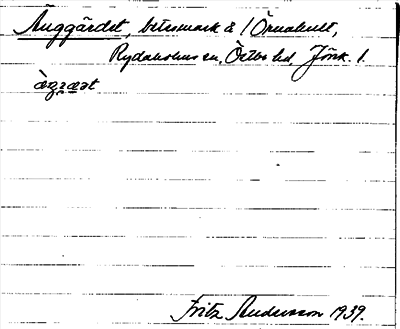 Änggärdet, betesmark å 1 Örnahult,
Rydaholms sn, Östbo hd, Jönk. l.
Fritz Andersson 1939.